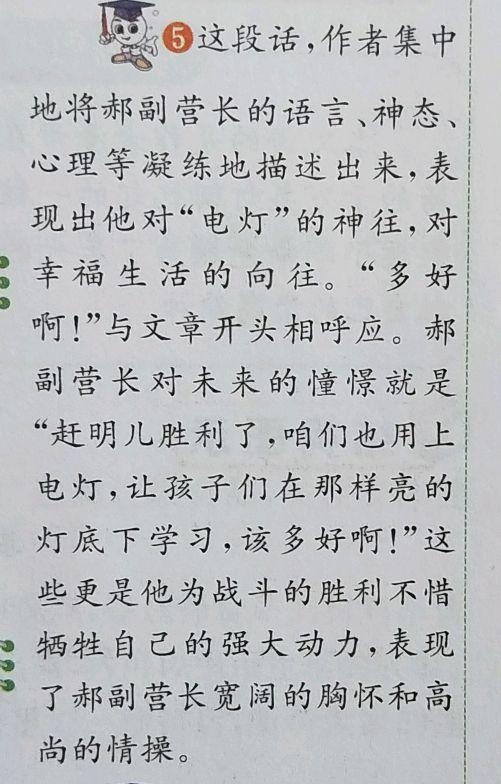 5这段话,作者集中
地将郝副营长的语言、神态、
心理等凝练地描述出来,表
现出他对“电灯”的神往,对
幸福生活的向往。“多好
啊!”与文章开头相呼应。郝
副营长对未来的憧憬就是
“赶明儿胜利了,咱们也用上
电灯,让孩子们在那样亮的
灯底下学习,该多好啊!”这
些更是他为战斗的胜利不惜
牺牲自己的强大动力,表现
了郝副营长宽阔的胸怀和高
尚的情操。